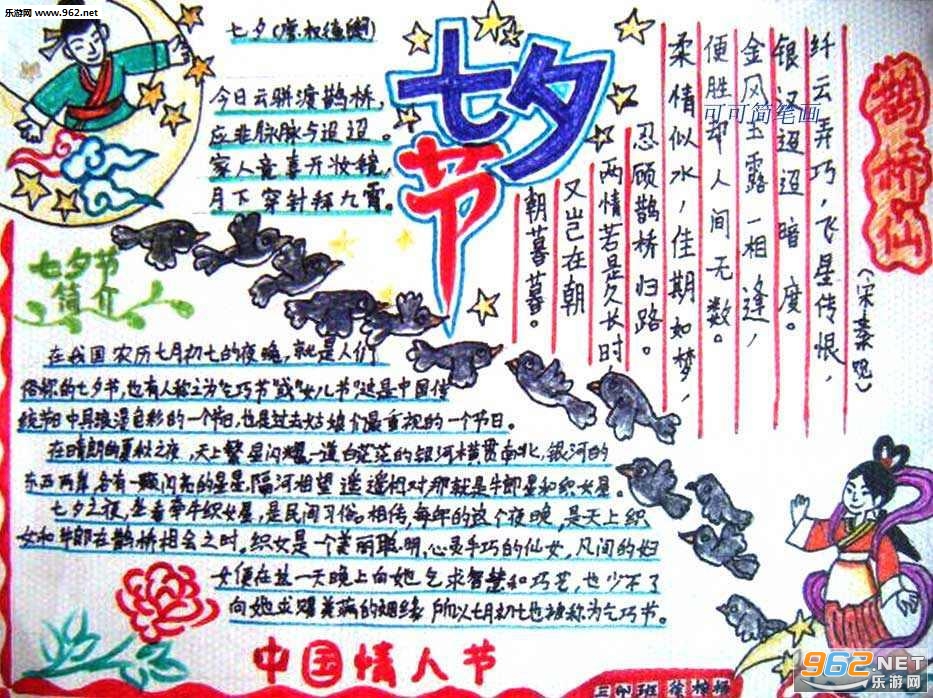 乐游网www.962.net
七夕(唐 权德舆)
今日云骈渡鹊桥，
应非脉脉与迢迢。
家人竞喜开妆镜，
月下穿针拜九霄。
七夕
节
鹊桥仙
(宋 秦观)
纤云弄巧，飞星传恨，
银汉迢迢暗度。
金风玉露一相逢，
便胜却人间无数。
柔情似水，佳期如梦，
忍顾鹊桥归路。
两情若是久长时
又岂在朝
朝暮暮。
可可简笔画
七夕节
简介
在我国农历七月初七的夜晚，就是人们
俗称的七夕节，也有人称之为"乞巧节"或"女儿节"这是中国传
统节日中具浪漫色彩的一个节日，也是过去姑娘们最重视的一个节日。
在晴朗的夏秋之夜，天上繁星闪耀，一道白茫茫的银河横贯南北，银河的
东西两岸，各有一颗闪亮的星星，隔河相望，遥遥相对，那就是牛郎星和织女星。
七夕之夜，坐看牵牛织女星，是民间习俗。相传，每年的这个夜晚，是天上织
女和牛郎在鹊桥相会之时。织女是一个美丽聪明，心灵手巧的仙女，凡间的妇
女便在这一天晚上向她乞求智慧和巧艺，也少不了
向她求赐美满的姻缘，所以七月初七也被称为乞巧节。
中国情人节
962.NET
乐游网